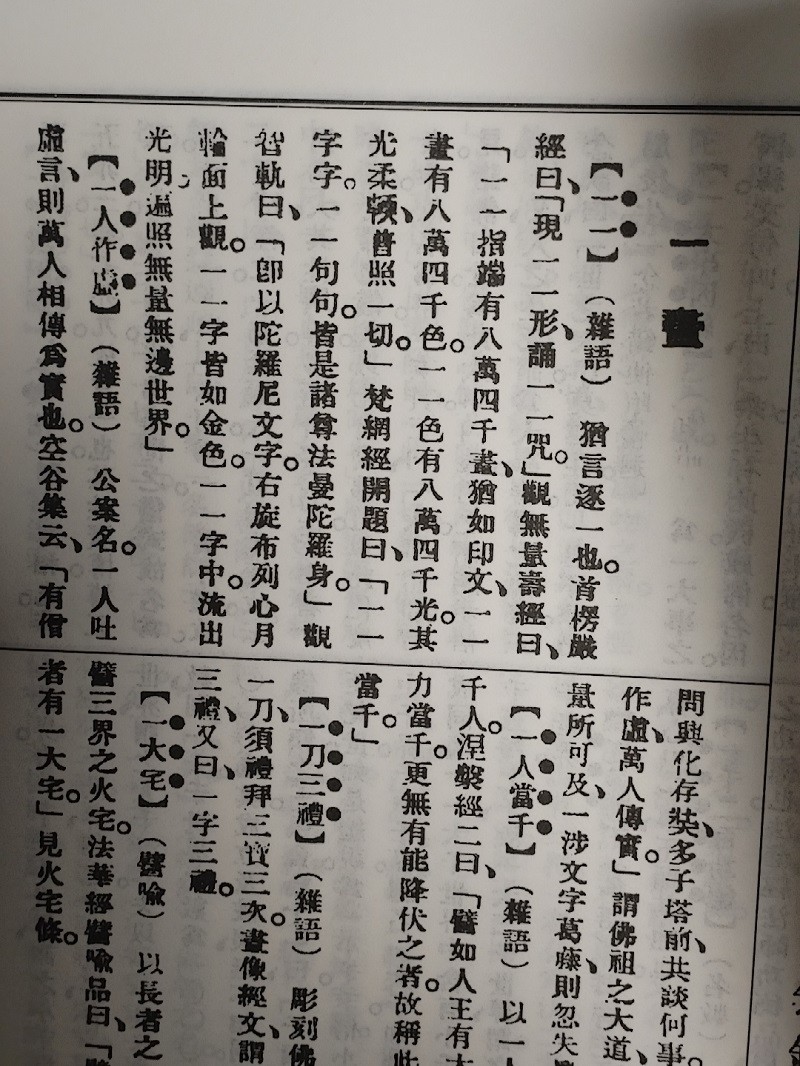 一畫
【一一】（雜語）　猶言逐一也。首楞嚴
經曰、「現一一形、誦一一咒。」觀無量壽經曰、
「一一指端有八萬四千畫、猶如印文、一一
畫有八萬四千色。一一色有八萬四千光。其
光柔輭、普照一切。」梵網經開題曰、「一一
字字。一一句句。皆是諸尊法曼陀羅身。」觀
智軌曰、「卽以陀羅尼文字。右旋布列心月
輪面上觀。一一字皆如金色。一一字中。流出
光明。遍照無量無邊世界。」
【一人作虛】（雜語）　公案名。一人吐
虛言、則萬人相傳爲實也。空谷集云、「有僧
問興化存奘、多子塔前、共談何事。
作虛、萬人傳實。」謂佛祖之大道、
量所可及、一涉文字葛藤、則忽失
【一人當千】（雜語）　以一人
千人。涅槃經二曰、「譬如人王有
力當千。更無有能降伏之者。故稱此
當千。」
【一刀三禮】（雜語）　彫刻佛
一刀、須禮拜三寶三次。畫像經文、謂
三禮、又曰、一字三禮。
【一大宅】（譬喩）　以長者之
譬三界之火宅。法華經譬喩品曰、「
者有一大宅。」見火宅條。